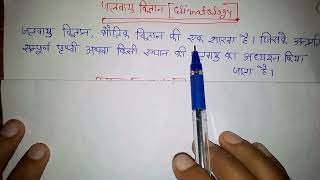 जलवायु विज्ञान [Climatology]
जलवायु विज्ञान, भौतिक विज्ञान की एक शाखा है। जिसके अन्तर्गत
सम्पूर्ण पृथ्वी अथवा किसी स्थान की जलवायु का अध्ययन किया
जाता है।